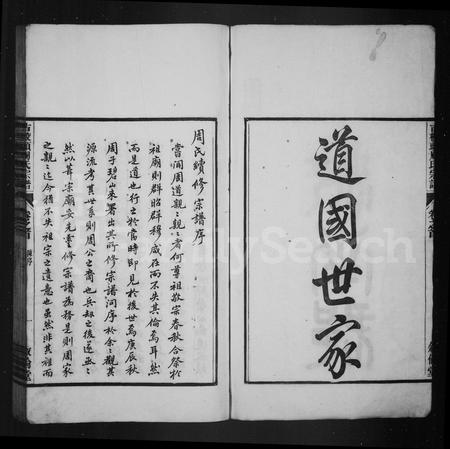 道國世家
周氏續修宗譜序
嘗聞周道親親者何尊祖敬宗春秋合祭於
祖廟則群昭群穆咸在而不失其倫焉耳然
而是道也行之於當時即見於後世焉庚辰秋
周子碧山來署出其所修宗譜問序於余余觀其
源流考其世系則周公之裔也兵劫之後遂
然以葺宗廟妥先靈修宗譜為務是則周家
之親親迄今猶不失祖宗之遺意也雖然非其雅而
FamilySearch